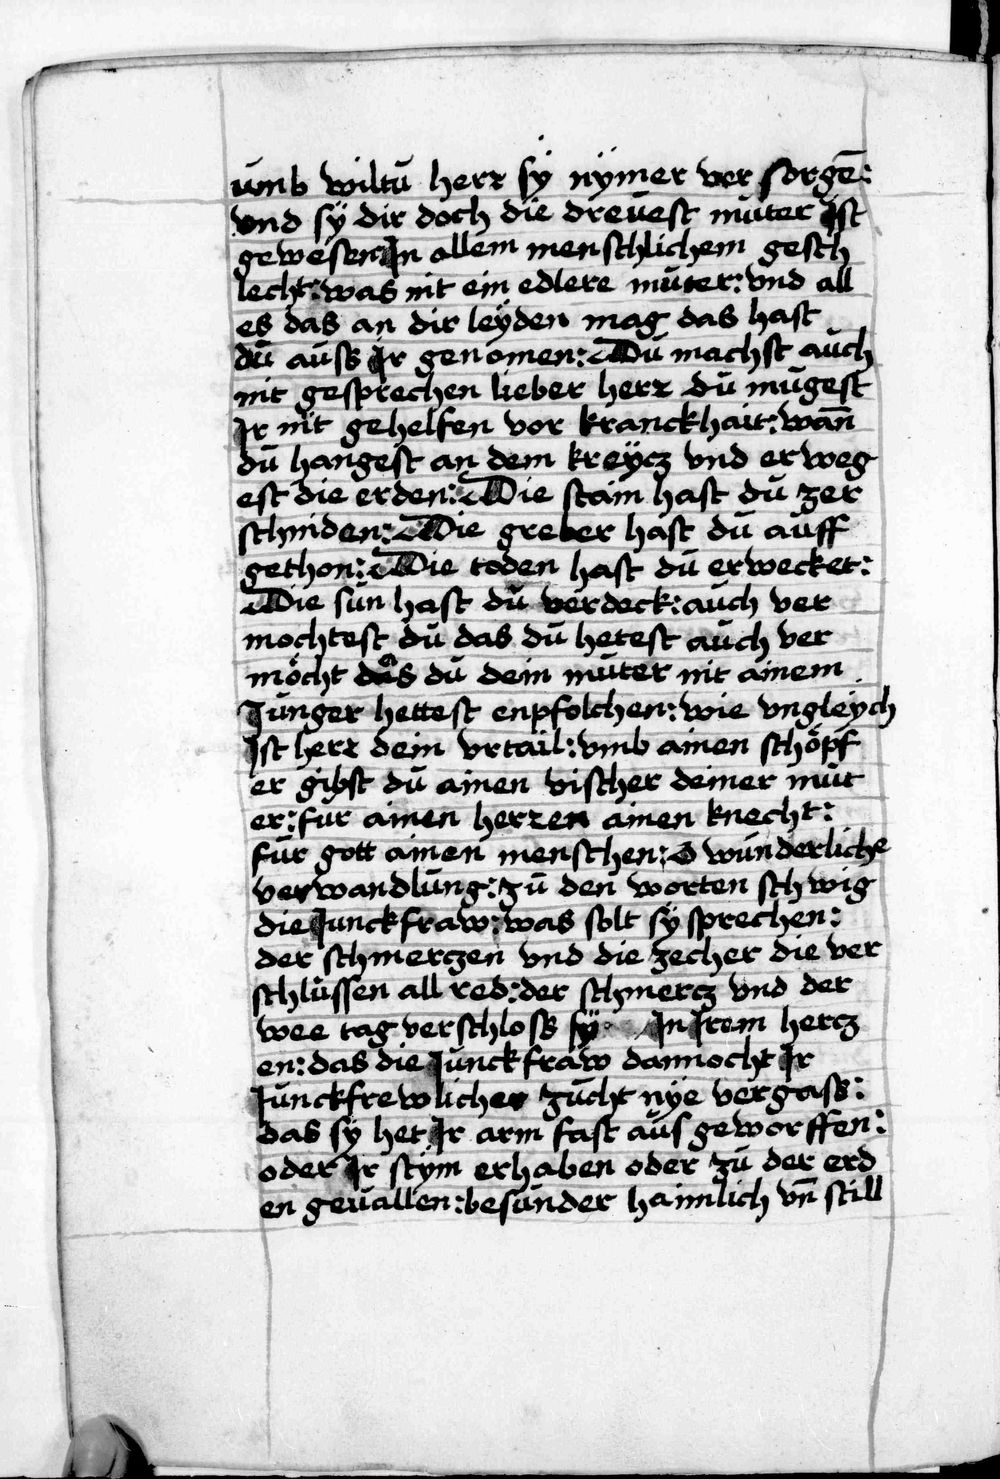 umb wiltu herr sÿ nÿmer ver sorgē:
vnd sÿ dir doch die dreuest muter Ist
gewesen: In allem menschlichem gesch
lecht: was nit ein edlere muter: vnd all
es das an dir leÿden mag das hast
du auss Ir genomen: Du machst auch
nit gesprechen lieber herr du mugest
Ir nit gehelfen vor kranckhait: wañ
du hangest an dem kreÿcz vnd erweg
est die erden: Die stain hast du zer
schniden: Die greber hast du auff
gethon: Die toden hast du erwecket:
Die sun hast du verdeck: auch ver
mochtest du das du hetest auch ver
möcht das du dein muter nit ainem
Junger hettest enpfolchen: wie vngleÿch
Ist herr dein vrtail: vmb ainen schöpf
er gibst du ainen vischer deiner mut
er: fur ainen herren ainen knecht:
fur gott ainen menschen: O wunderliche
verwandlung: zu den worten schwig
die Junckfraw: was solt sÿ sprechen:
der schmerczen vnd die zecher die ver
schlussen all red: der schmercz vnd der
wee tag verschloss sÿ In Irem hercz
en: das die Junckfraw dannocht Ir
Junckfrewlicher zucht nye vergass:
das sy het Ir arm fast aus geworffen:
oder Ir stÿm erhaben oder zu der erd
en geuallen: besunder haimlich vñ still